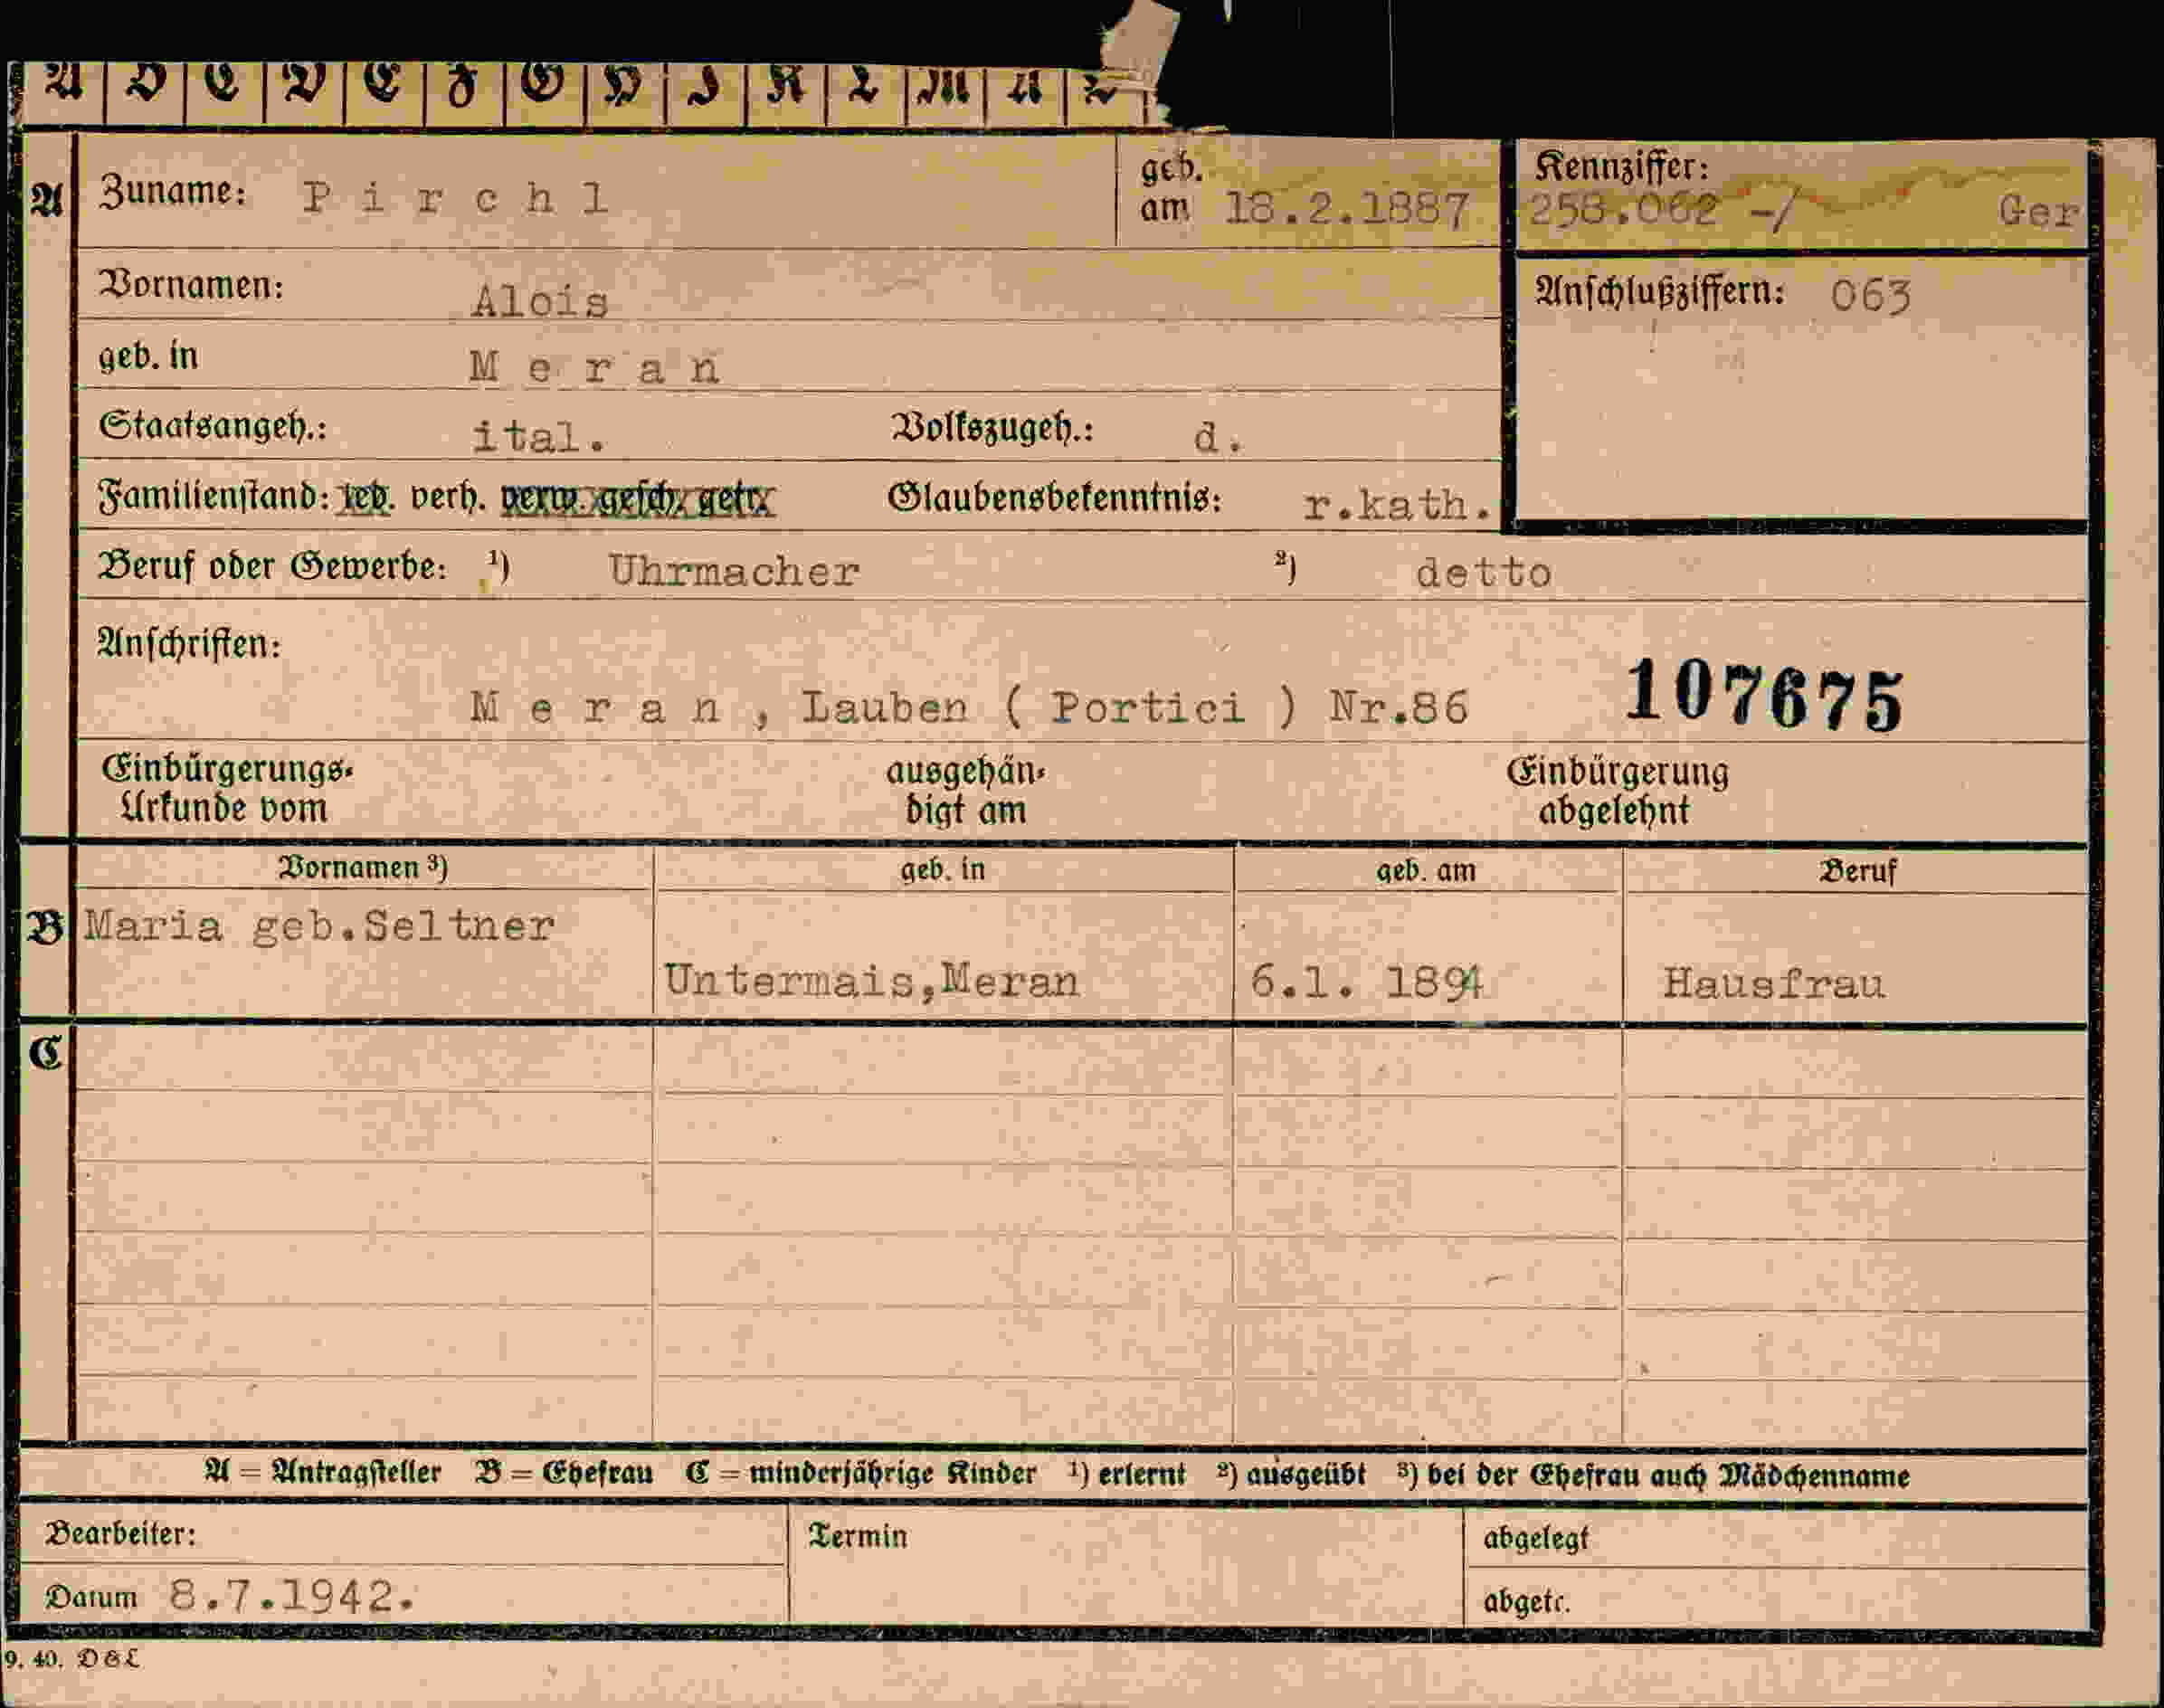 A B C D E F G H J K L M N
A Zuname: Pirchl geb. am 18.2.1887 Kennziffer: 258.062 -/ Ger
Vornamen: Alois Anschlußziffern: 063
geb. in Meran
Staatsangeh.: ital. Volkszugeh.: d.
Familienstand: led. verh. verw. gesch. getr. Glaubensbekenntnis: r.kath.
Beruf oder Gewerbe: ¹) Uhrmacher ²) detto
Anschriften:
Meran, Lauben ( Portici ) Nr.86 107675
Einbürgerungs- ausgehän- Einbürgerung
Urkunde vom digt am abgelehnt
Vornamen ³) geb. in geb. am Beruf
B Maria geb.Seltner
Untermais,Meran 6.1. 1894 Hausfrau
C
A = Antragsteller B = Ehefrau C = minderjährige Kinder ¹) erlernt ²) ausgeübt ³) bei der Ehefrau auch Mädchenname
Bearbeiter: Termin abgelegt
Datum 8.7.1942. abgetr.
9. 40. D&L